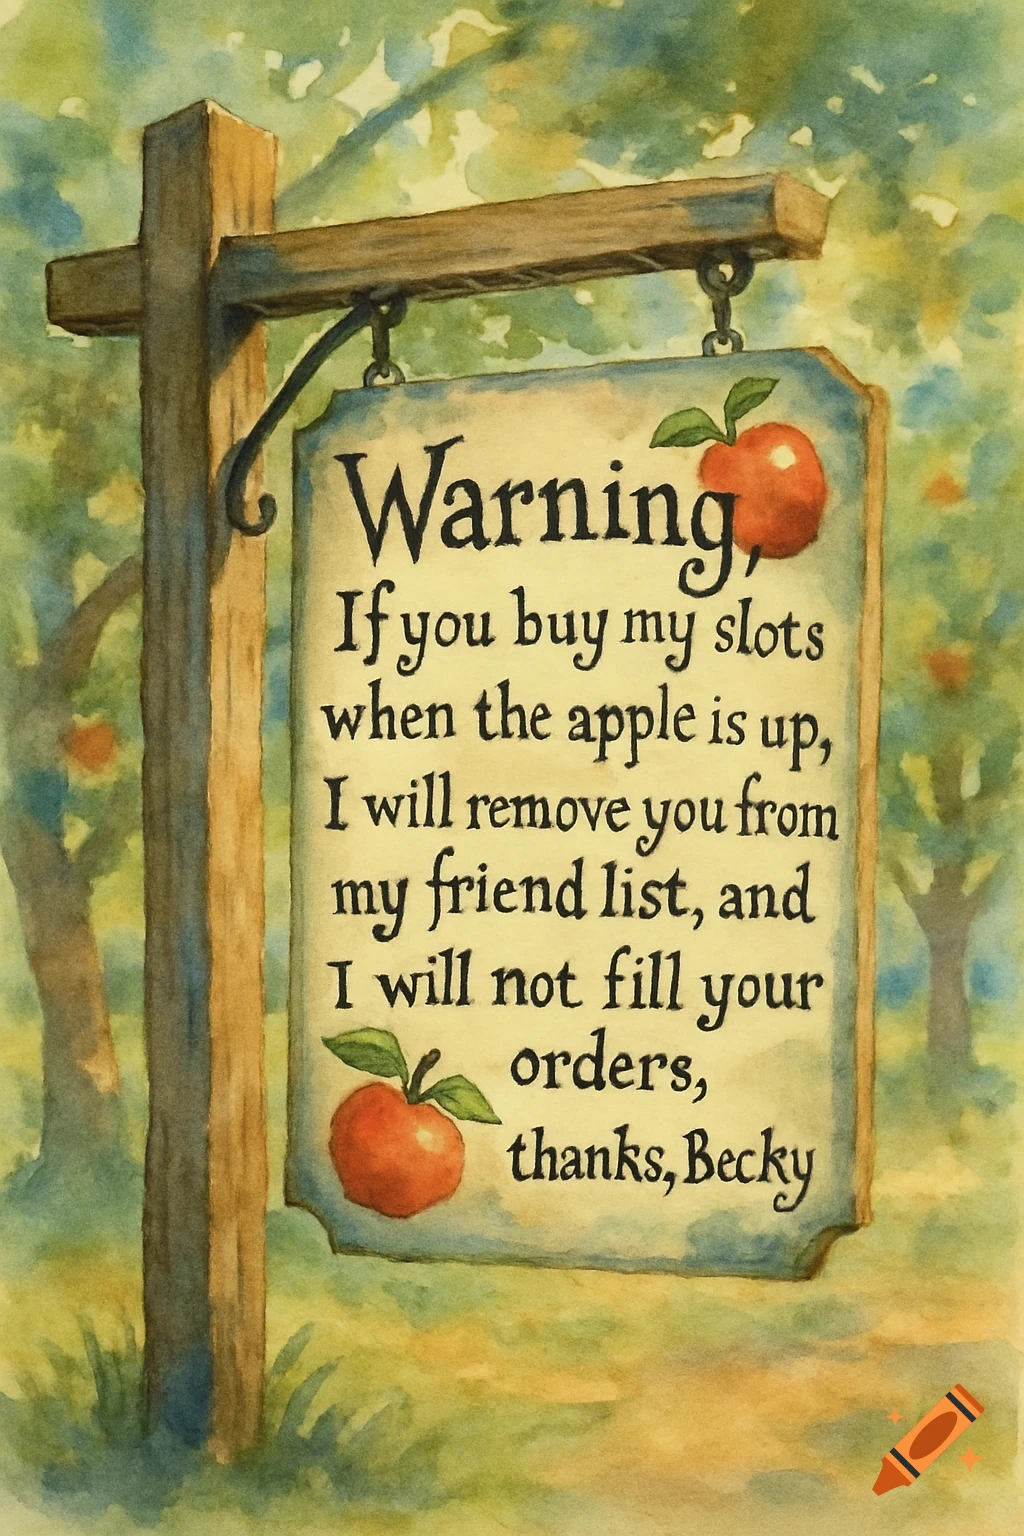 Warning,
If you buy my slots
when the apple is up,
I will remove you from
my friend list, and
I will not fill your
orders,
thanks, Becky